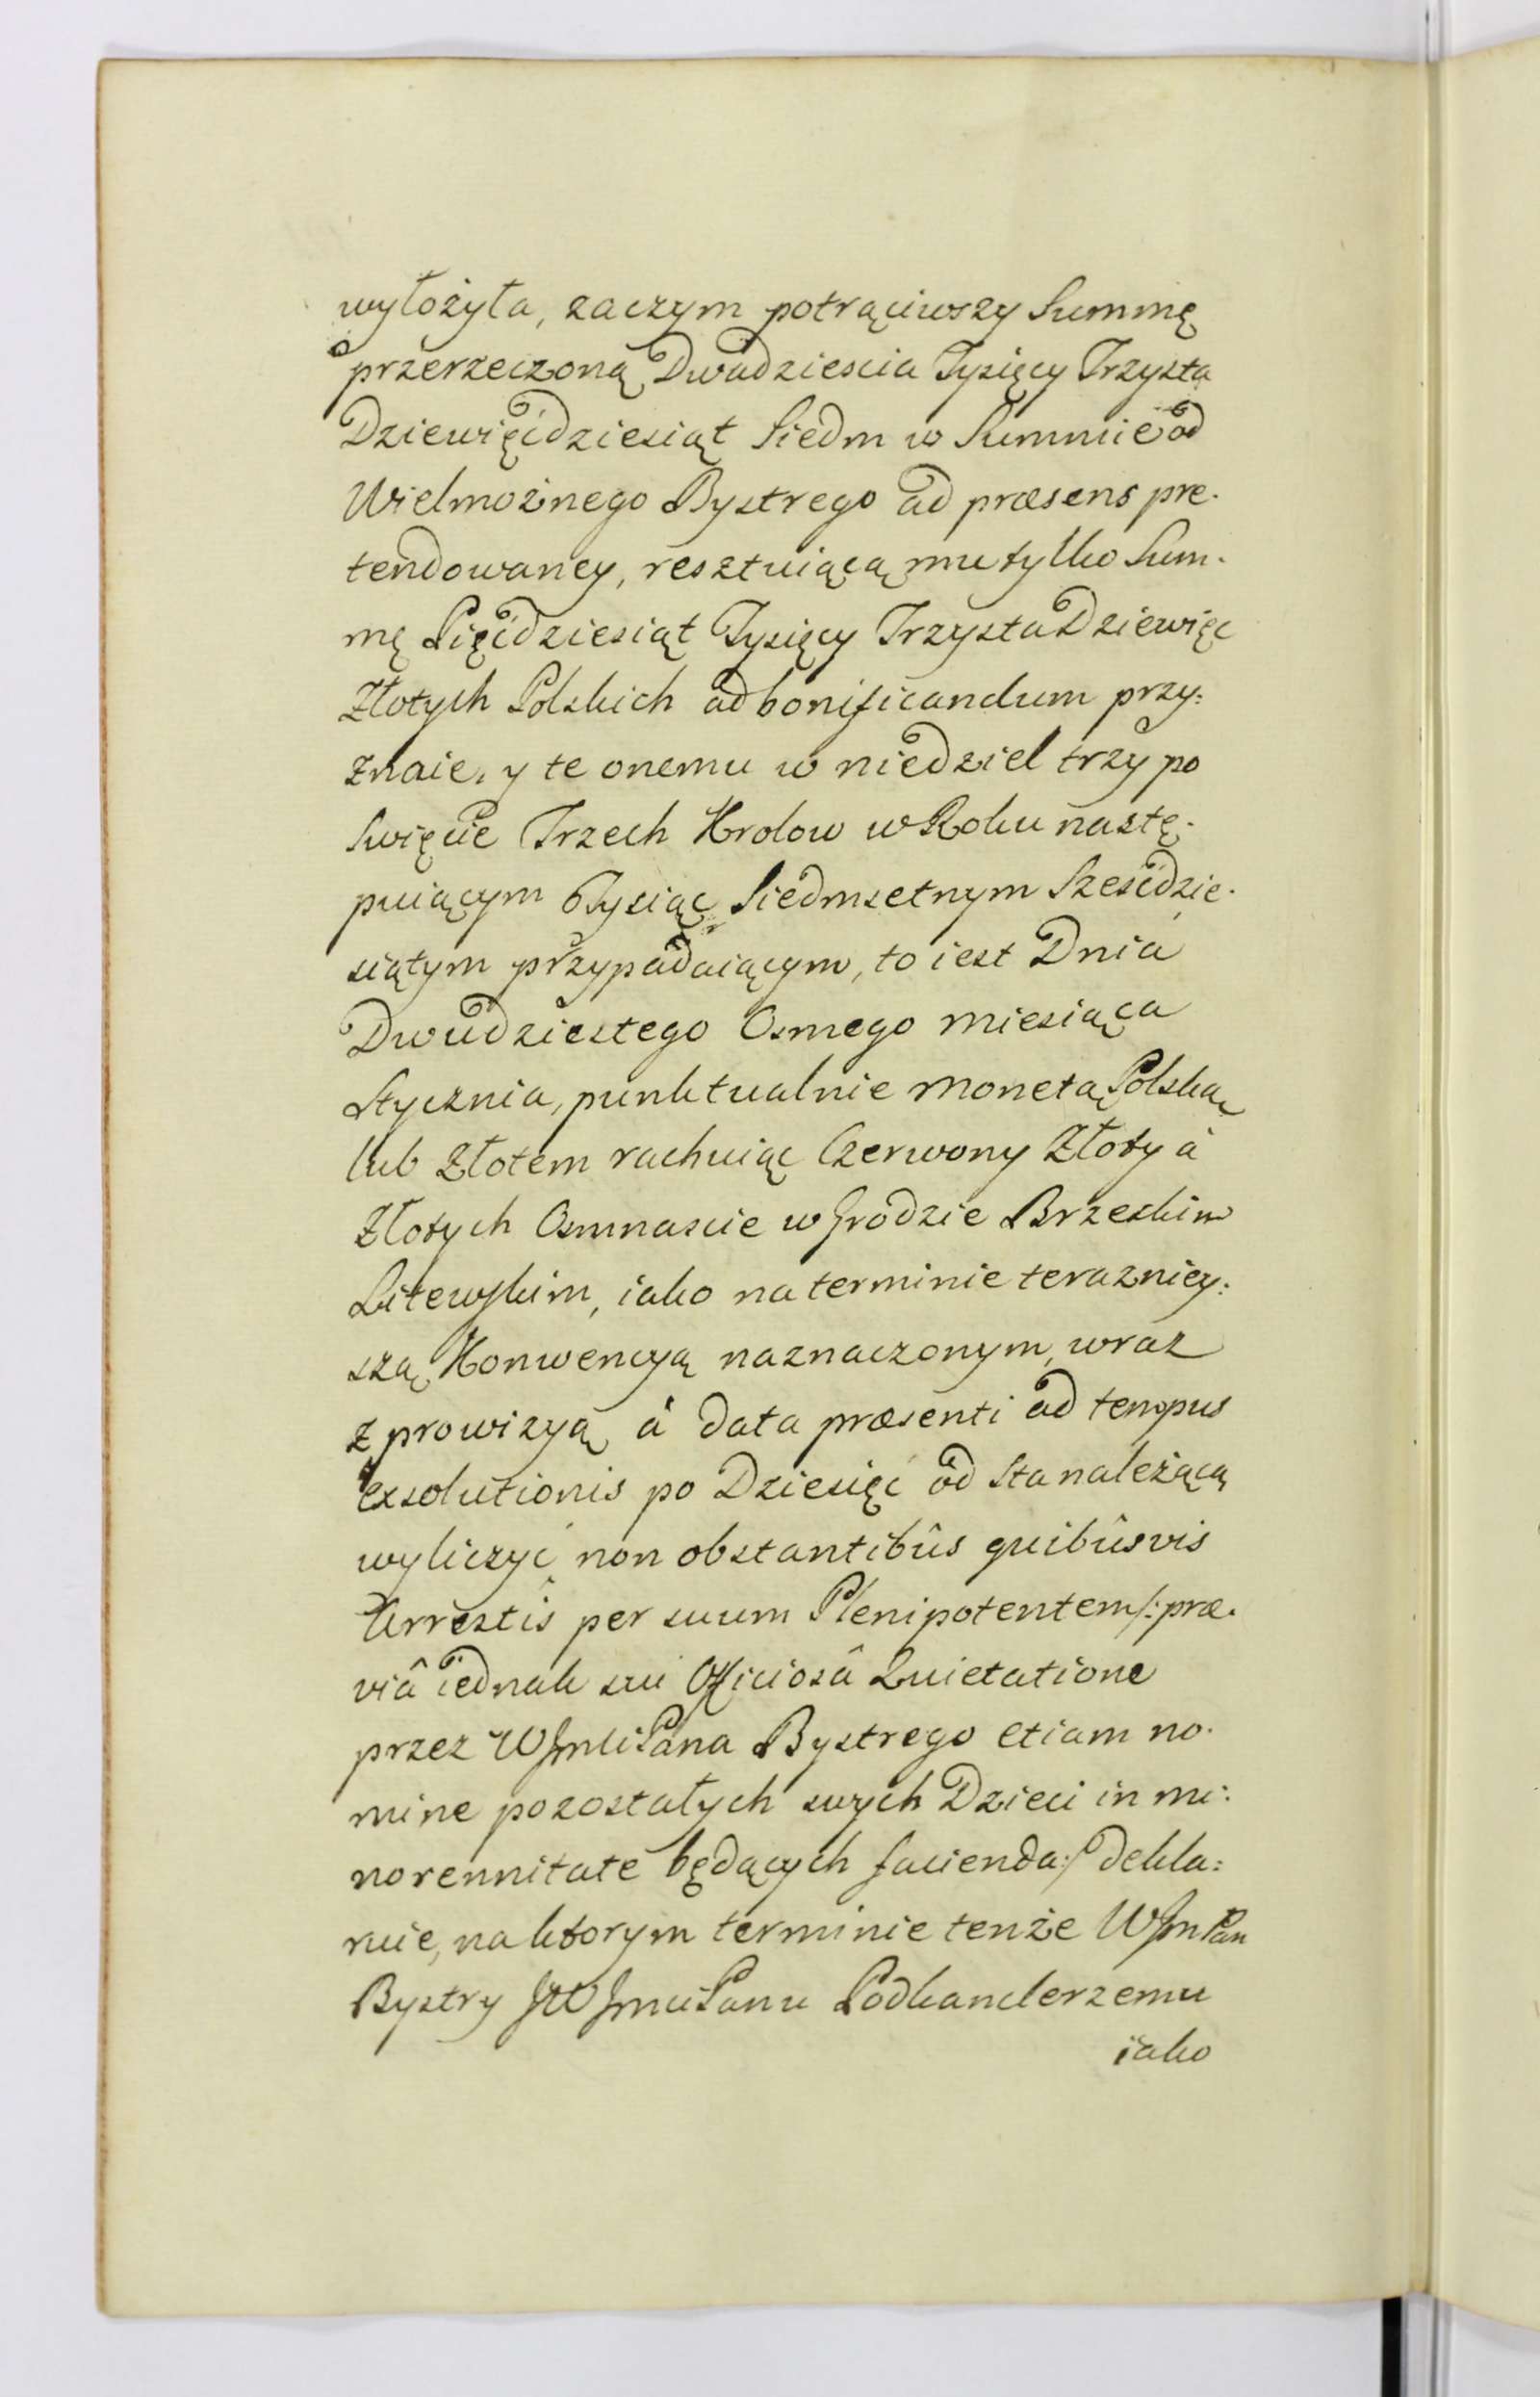 wyłożyła, zaczym potrąciwszy Summę
przerzeczoną Dwadziescia Tysięcy Trzysta
Dziewięćdziesiąt Siedm w Summie od
Wielmożnego Bystrego ad præsens pre.
tendowaney, resztuiącą mu tylko Sum.
mę Pięćdziesiąt Tysięcy Trzysta Dziewięc
Złotych Polskich ad bonificandum przy:
znaie, y te onemu w niedziel trzy po
Swięcie Trzech Krolow w Roku nastę.
puiącym Tysiąc Siedmsetnym Szesćdzie.
siątym przypadaiącym, to iest Dnia
Dwudziestego Osmego miesiąca
Stycznia, punktualnie monetą Polską
lub Złotem rachuiąc Czerwony Złoty à
Złotych Osmnascie w Grodzie Brzeskim
Litewskim, iako na terminie terazniey:
szą Konwencyą naznaczonym, wraz
z prowizyą à data præsenti ad tempus
exsolutionis po Dziesięć od Sta należącą
wyliczyć non obstantibûs quibûsvis
Arrestis per suum Plenipotentem /: præ.
viâ iednak sui Officiosâ Quietatione
przez WJmci Pana Bystrego etiam no.
mine pozostałych swych Dzieci in mi:
norennitate będących facienda :/ dekla:
ruie, na ktorym terminie tenże WJm Pan
Bystry JWJmci Panu Podkanclerzemu
iako